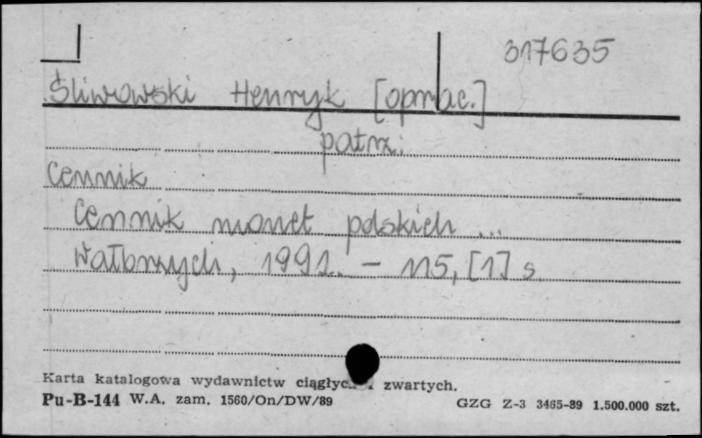 317635
Śliwowski Henryk [oprac.]
patrz:
Cennik
Cennik monet polskich ...
Wałbrzych, 1991. - 115, [1] s.
Karta katalogowa wydawnictw zwartych.
Pu-B-144 W.A. zam. 1560/On/DW/89
GZG Z-3 3465-89 1.500.000 szt.